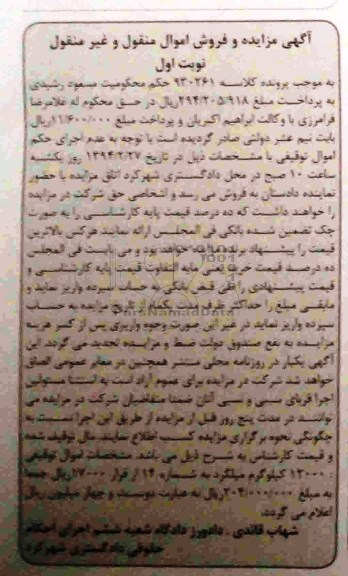 آگهی مزایده و فروش اموال منقول و غیر منقول
نوبت اول
به موجب پرونده کلاسه ۹۳۰۲۶۱ حکم محکومیت مسعود رشیدی
به پرداخت مبلغ ۲۹۴/۲۰۵/۹۱۸ریال در حق محکوم له غلامرضا
فرامرزی با وکالت ابراهیم اکبریان و پرداخت مبلغ ۱۱/۶۰۰/۰۰۰ریال
بابت نیم عشر دولتی صادر گردیده است با توجه به عدم اجرای حکم
اموال توقیفی با مشخصات ذیل در تاریخ ۱۳۹۴/۲/۲۷ روز یکشنبه
ساعت ۱۰ صبح در محل دادگستری شهرکرد اتاق مزایده با حضور
نماینده دادستان به فروش می رسد و اشخاصی حق شرکت در مزایده
را خواهند داشت که ده درصد قیمت پایه کارشناسی را به صورت
چک تضمین شده بانکی فی المجلس ارائه نمایند هرکس بالاترین
قیمت را پیشنهاد برنده مزایده خواهد بود و می بایست فی المجلس
ده درصد قیمت خرید یعنی مابه التفاوت قیمت پایه کارشناسی و
قیمت پیشنهادی را طی قبض بانکی به حساب سپرده واریز نماید و
مابقی مبلغ را حداکثر ظرف مدت یکماه از تاریخ مزایده به حساب
سپرده واریز نماید در غیر این صورت وجوه واریزی پس از کسر هزینه
مزایده به نفع صندوق دولت ضبط و مزایده تجدید می گردد. این
آگهی یکبار در روزنامه محلی منتشر همچنین در معابر عمومی الصاق
خواهد شد شرکت در مزایده برای عموم آزاد است به استثنا مسئولین
اجرا قربای سببی و نسبی آنان ضمنا متقاضیان شرکت در مزایده می
توانند در مدت پنج روز قبل از مزایده از طریق این اجرا نسبت به
چگونگی نحوه برگزاری مزایده کسب اطلاع نمایند. مال توقیف شده
و قیمت کارشناس به شرح ذیل می باشد. مشخصات اموال توقیفی
: ۱۲۰۰۰ کیلوگرم میلگرد به شماره ۱۴ از قرار ۱۷۰۰۰ریال جمعا
به مبلغ ۲۰۴/۰۰۰/۰۰۰ریال به عبارت دویست و چهار میلیون ریال
اعلام می گردد.
شهاب قائدی . دادورز دادگاه شعبه ششم اجرای احکام
حقوقی دادگستری شهرکرد
ParsNamadData